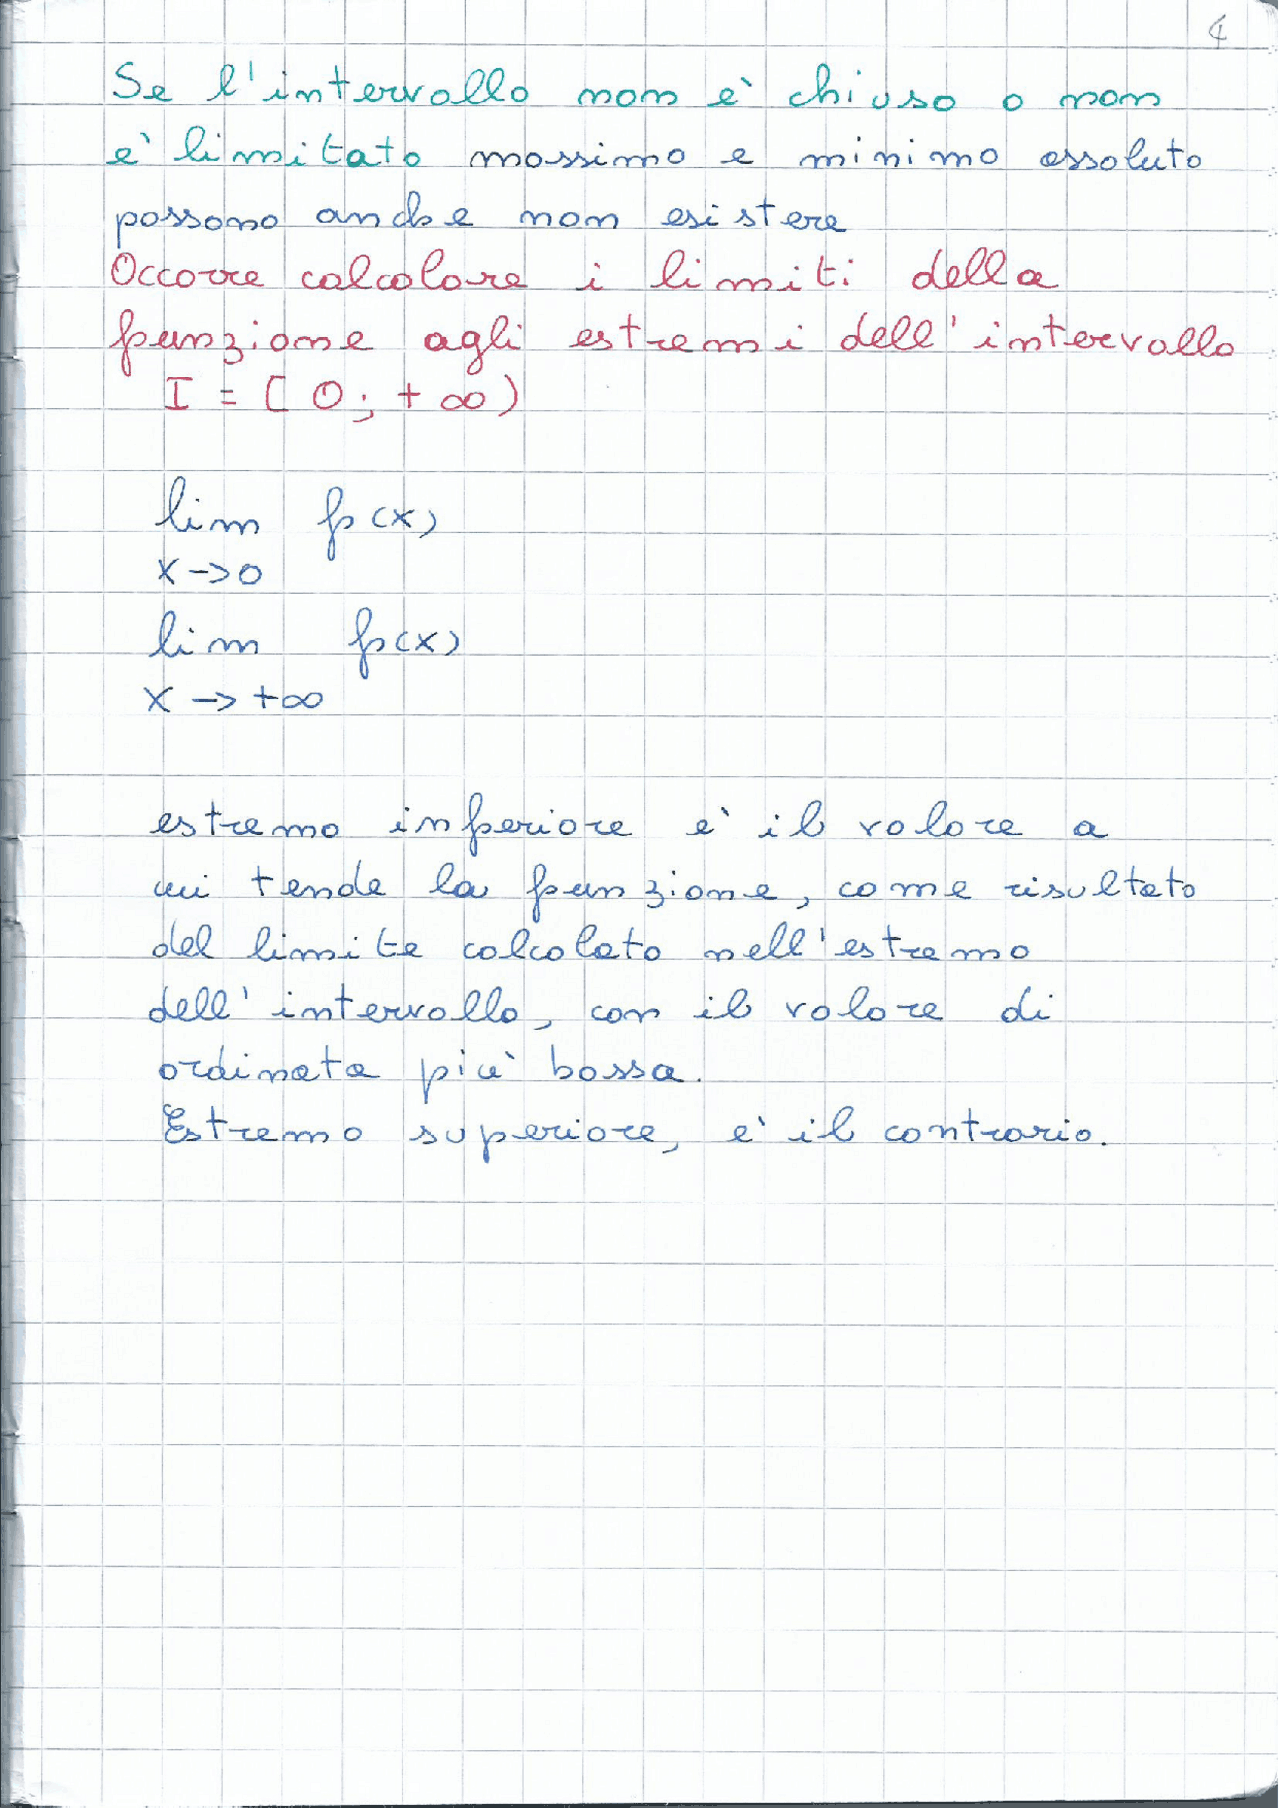 4
Se l'intervallo non è chiuso o non
è limitato massimo e minimo assoluto
possono anche non esistere
Occorre calcolare i limiti della
funzione agli estremi dell'intervallo
I = [ 0 ; + ∞ )
lim f(x)
x → 0
lim f(x)
x → +∞
estremo inferiore è il valore a
cui tende la funzione, come risultato
del limite calcolato nell'estremo
dell'intervallo, con il valore di
ordinata più bassa.
Estremo superiore, è il contrario.